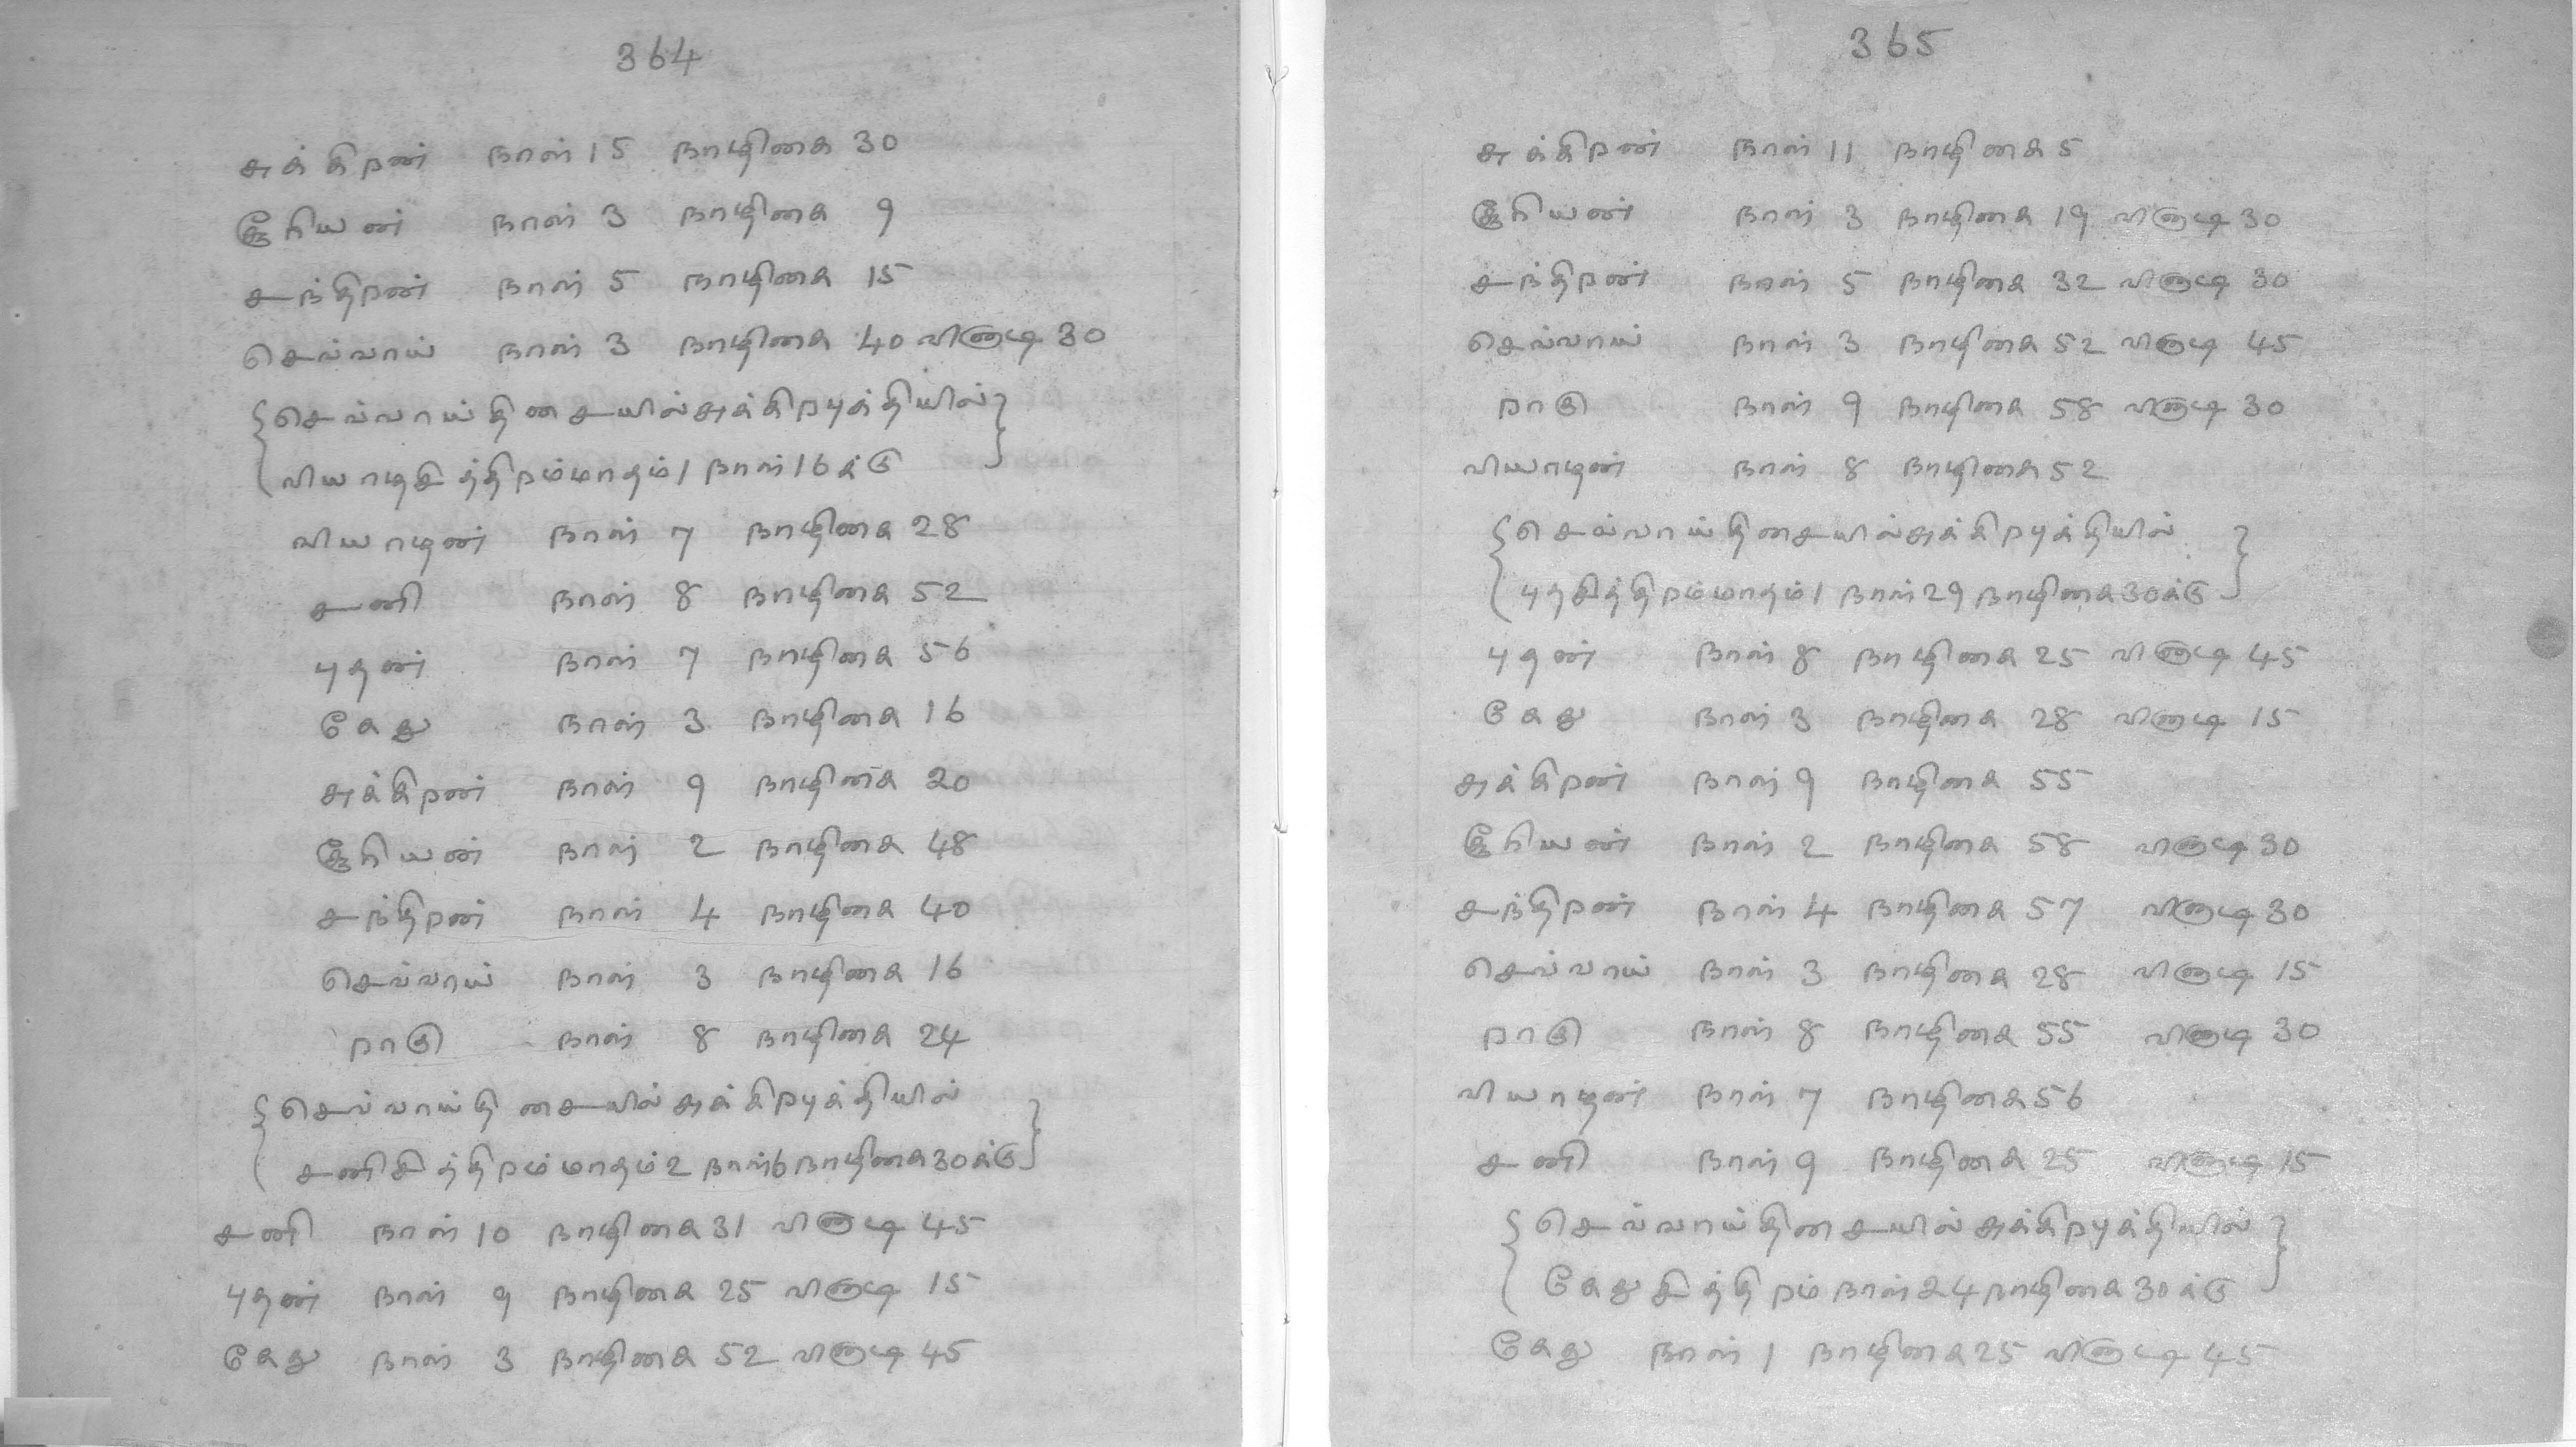 364
சுக்கிறன் நாள் 15 நாழிகை 30
சூரியன் நாள் 3 நாழிகை 9
சந்திறன் நாள் 5 நாழிகை 15
செவ்வாய் நாள் 3 நாழிகை 40 விநாடி 30
{செவ்வாய்திசையில்சுக்கிறபுக்தியில்}
{வியாழசித்திறம்மாதம்1 நாள்16க்கு}
வியாழன் நாள் 7 நாழிகை 28
சனி நாள் 8 நாழிகை 52
புதன் நாள் 7 நாழிகை 56
கேது நாள் 3 நாழிகை 16
சுக்கிறன் நாள் 9 நாழிகை 20
சூரியன் நாள் 2 நாழிகை 48
சந்திறன் நாள் 4 நாழிகை 40
செவ்வாய் நாள் 3 நாழிகை 16
றாகு நாள் 8 நாழிகை 24
{செவ்வாய்திசையில்சுக்கிறபுக்தியில்}
{சனிசித்திறம்மாதம்2 நாள்6நாழிகை30க்கு}
சனி நாள் 10 நாழிகை 31 விநாடி 45
புதன் நாள் 9 நாழிகை 25 விநாடி 15
கேது நாள் 3 நாழிகை 52 விநாடி 45
365
சுக்கிறன் நாள் 11 நாழிகை 5
சூரியன் நாள் 3 நாழிகை 19 விநாடி 30
சந்திறன் நாள் 5 நாழிகை 32 விநாடி 30
செவ்வாய் நாள் 3 நாழிகை 52 விநாடி 45
றாகு நாள் 9 நாழிகை 58 விநாடி 30
வியாழன் நாள் 8 நாழிகை 52
{செவ்வாய்திசையில்சுக்கிறபுக்தியில்}
{புதசித்திறம்மாதம்1 நாள்29நாழிகை30க்கு}
புதன் நாள் 8 நாழிகை 25 விநாடி 45
கேது நாள் 3 நாழிகை 28 விநாடி 15
சுக்கிறன் நாள் 9 நாழிகை 55
சூரியன் நாள் 2 நாழிகை 58 விநாடி 30
சந்திறன் நாள் 4 நாழிகை 57 விநாடி 30
செவ்வாய் நாள் 3 நாழிகை 28 விநாடி 15
றாகு நாள் 8 நாழிகை 55 விநாடி 30
வியாழன் நாள் 7 நாழிகை 56
சனி நாள் 9 நாழிகை 25 விநாடி 15
{செவ்வாய்திசையில்சுக்கிறபுக்தியில்}
{கேதுசித்திறம்நாள்24நாழிகை30க்கு}
கேது நாள் 1 நாழிகை 25 விநாடி 45